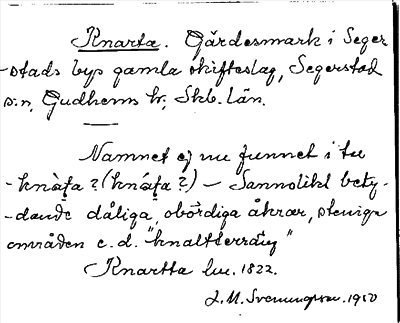 Knarta. Gärdesmark i Seger-
-stads bys gamla skifteslag, Segerstad
s:n, Gudhems hr, Skb. län.
Namnet ej nu funnet i tu
-knàţa? (knáţa?) – Sannolikt bety-
-dande dåliga, obördiga åkrar, steniga
områden e. d. "knaltterräng"
Knartta lm. 1822.
J. M. Svenungsson. 1950